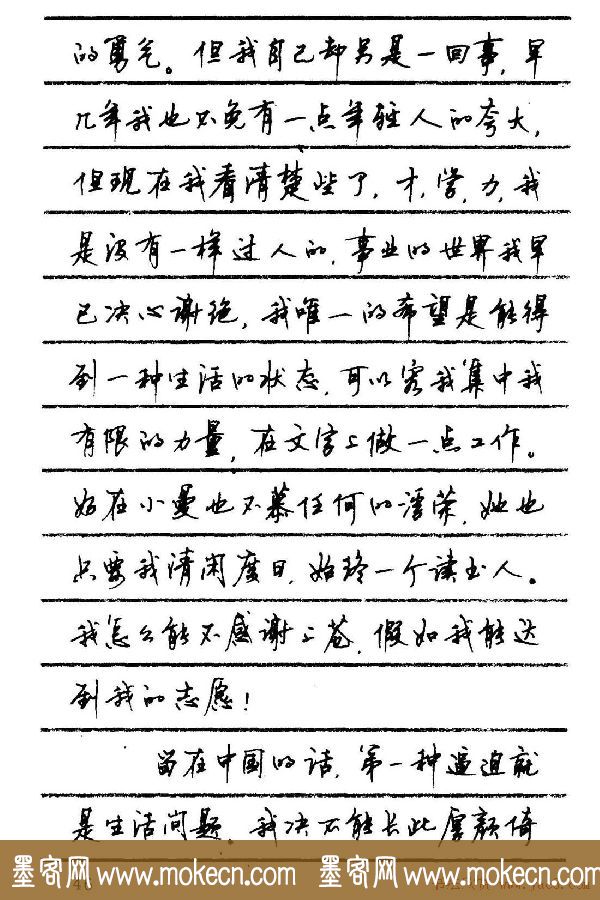 的勇气。但我自己却另是一回事，早
几年我也不免有一点年轻人的夸大，
但现在我看清楚些了，才，学，力，我
是没有一样过人的，事业的世界我早
已决心谢绝，我唯一的希望是能得
到一种生活的状态，可以容我集中我
有限的力量，在文字上做一点工作。
好在小曼也不慕任何的浮荣，她也
只要我清闲度日，始终一个读书人。
我怎么能不感谢上苍，假如我能达
到我的志愿！
留在中国的话，第一种逼迫就
是生活问题。我决不能长此厚颜倚
墨客网 www.mokecn.com 墨客网 www.mokecn.com